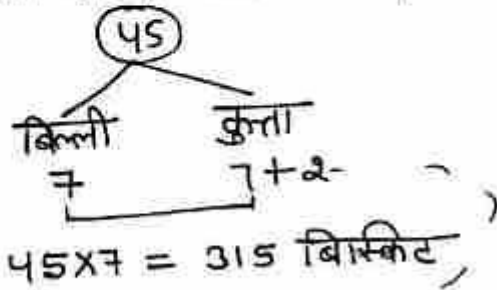 45
बिल्ली कुत्ता
7 7+2
45×7 = 315 बिस्किट